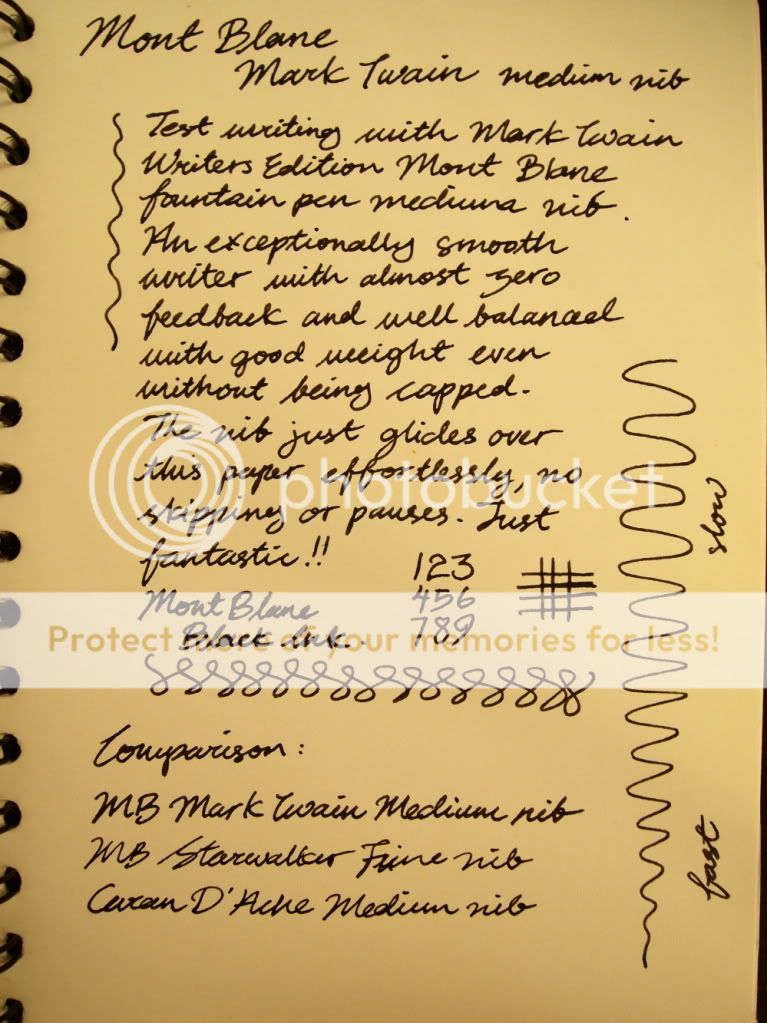 Mont Blanc
Mark Twain medium nib
Test writing with Mark Twain
Writers Edition Mont Blanc
fountain pen medium nib.
An exceptionally smooth
writer with almost zero
feedback and well balanced
with good weight even
without being capped.
The nib just glides over
this paper effortlessly, no
skipping or pauses. Just
fantastic!!
photobucket
slow
123
Mont Blanc
456
Protect more of your memories for less!
Black Ink.
789
Comparison:
MB Mark Twain Medium nib
MB Starwalker Fine nib
fast
Caran D'Ache Medium nib